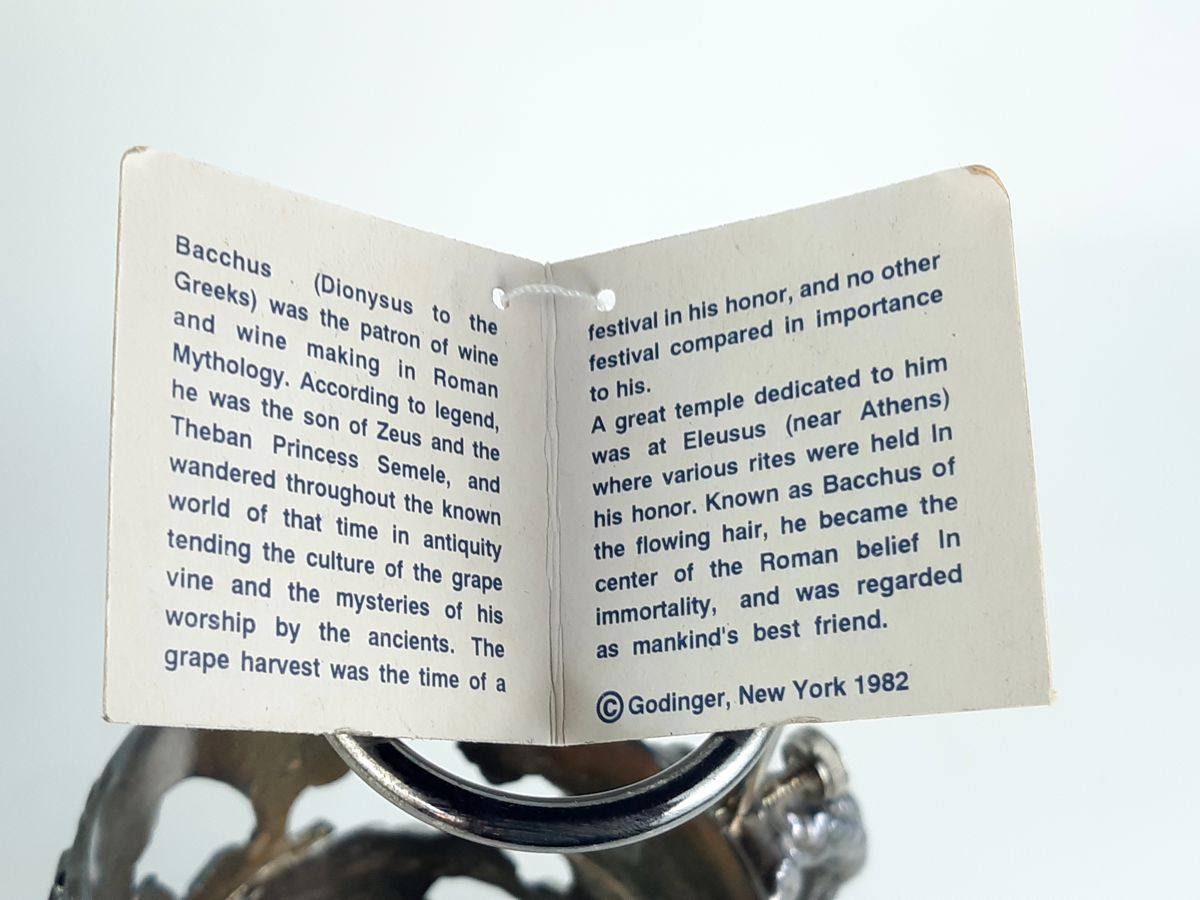 Bacchus (Dionysus to the
Greeks) was the patron of wine
and wine making in Roman
Mythology. According to legend,
he was the son of Zeus and the
Theban Princess Semele, and
wandered throughout the known
world of that time in antiquity
tending the culture of the grape
vine and the mysteries of his
worship by the ancients. The
grape harvest was the time of a
festival in his honor, and no other
festival compared in importance
to his.
A great temple dedicated to him
was at Eleusus (near Athens)
where various rites were held In
his honor. Known as Bacchus of
the flowing hair, he became the
center of the Roman belief In
immortality, and was regarded
as mankind's best friend.
© Godinger, New York 1982